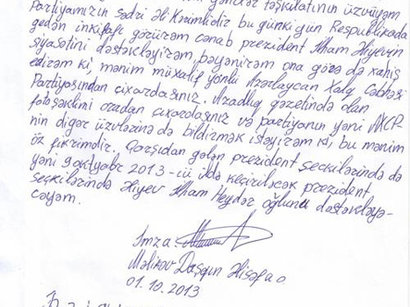 gənclər təşkilatının üzvüyəm
Partiyamızın sədri Əli Kərimlidir bu günki gün Respublikada
gedən inkişafı görürəm cənab prezident İlham Əliyevin
siyasətini dəstəkləyirəm, bəyənirəm ona görə də xahiş
edirəm ki, mənim müxalif yönlü Azərbaycan Xalq Cəbhəsi
Partiyasından çıxardasınız. Azadlıq qəzetində olan
fotoşəklini oradan çıxardasınız və partiyanın yəni AXCP-
nin digər üzvlərinə də bildirmək istəyirəm ki, bu mənim
öz fikrimdir. Qarşıdan gələn prezident seçkilərində də
yəni 9 oktyabr 2013-cü ildə keçiriləcək prezident
seçkilərində Əliyev İlham Heydər oğlunu dəstəkləyə-
cəyəm.
İmza
Məlikov Daşqın Əlisəfa o
01.10.2013